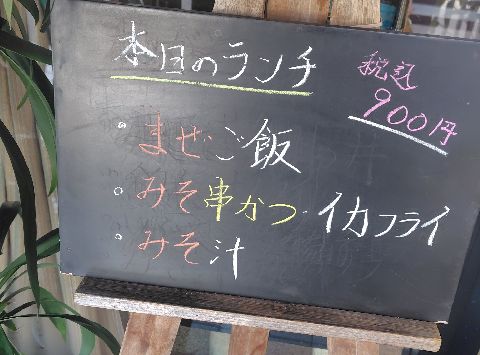 本日のランチ
税込
900円
・まぜご飯
・みそ串かつ・イカフライ
・みそ汁